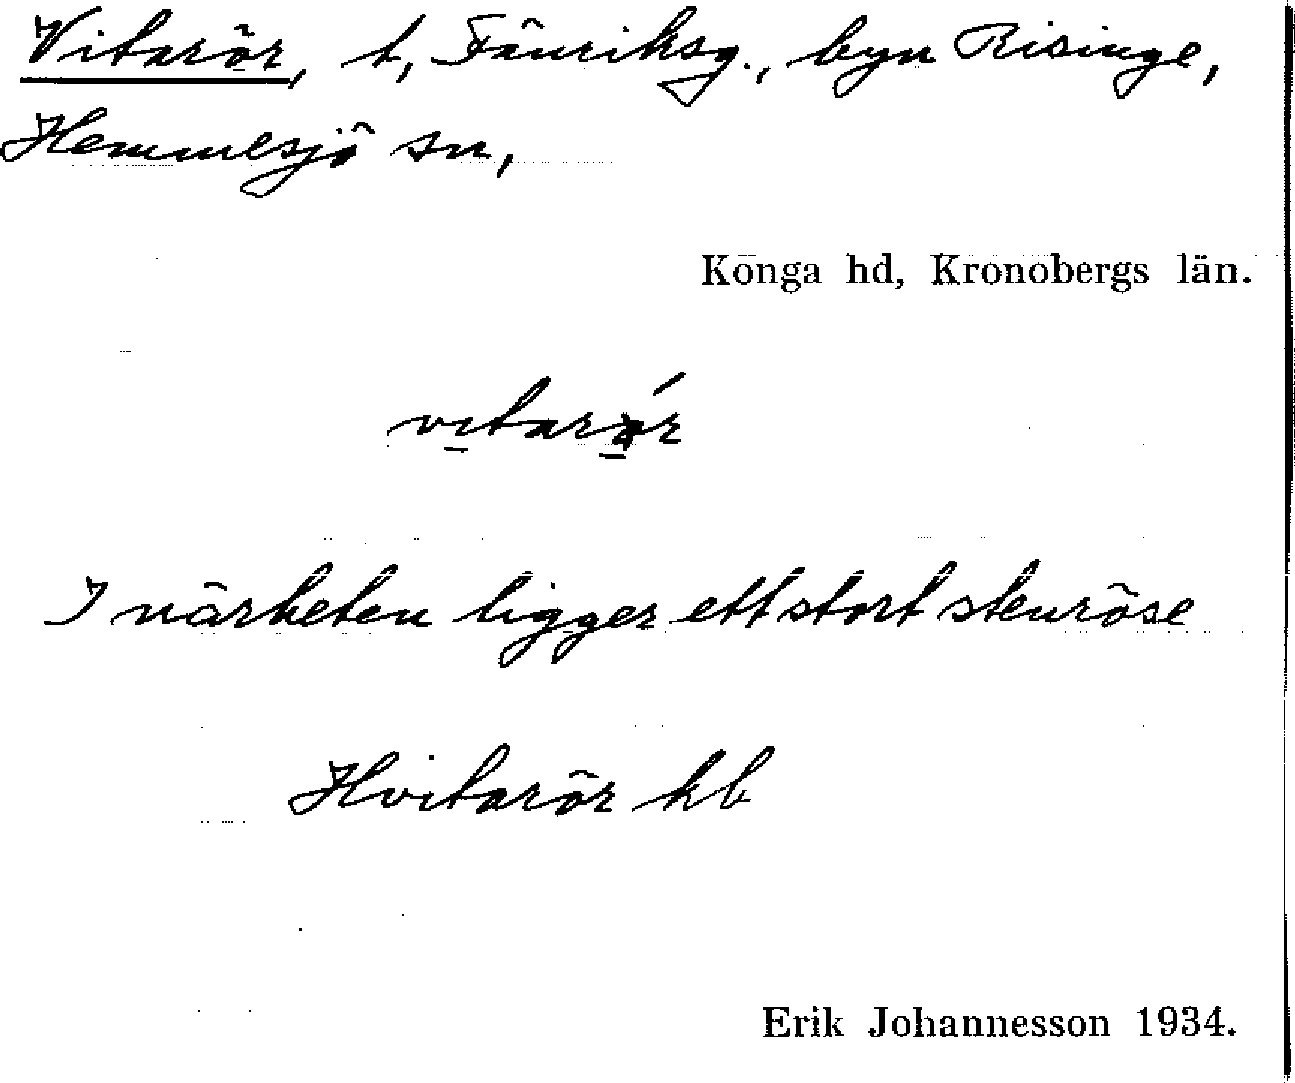 Vitarör, t, Fänriksg., byn Risinge,
Hemmesjö sn,
Konga hd, Kronobergs län.
vitarør
I närheten ligger ett stort stenröse
Hvitarör hb
Erik Johannesson 1934.